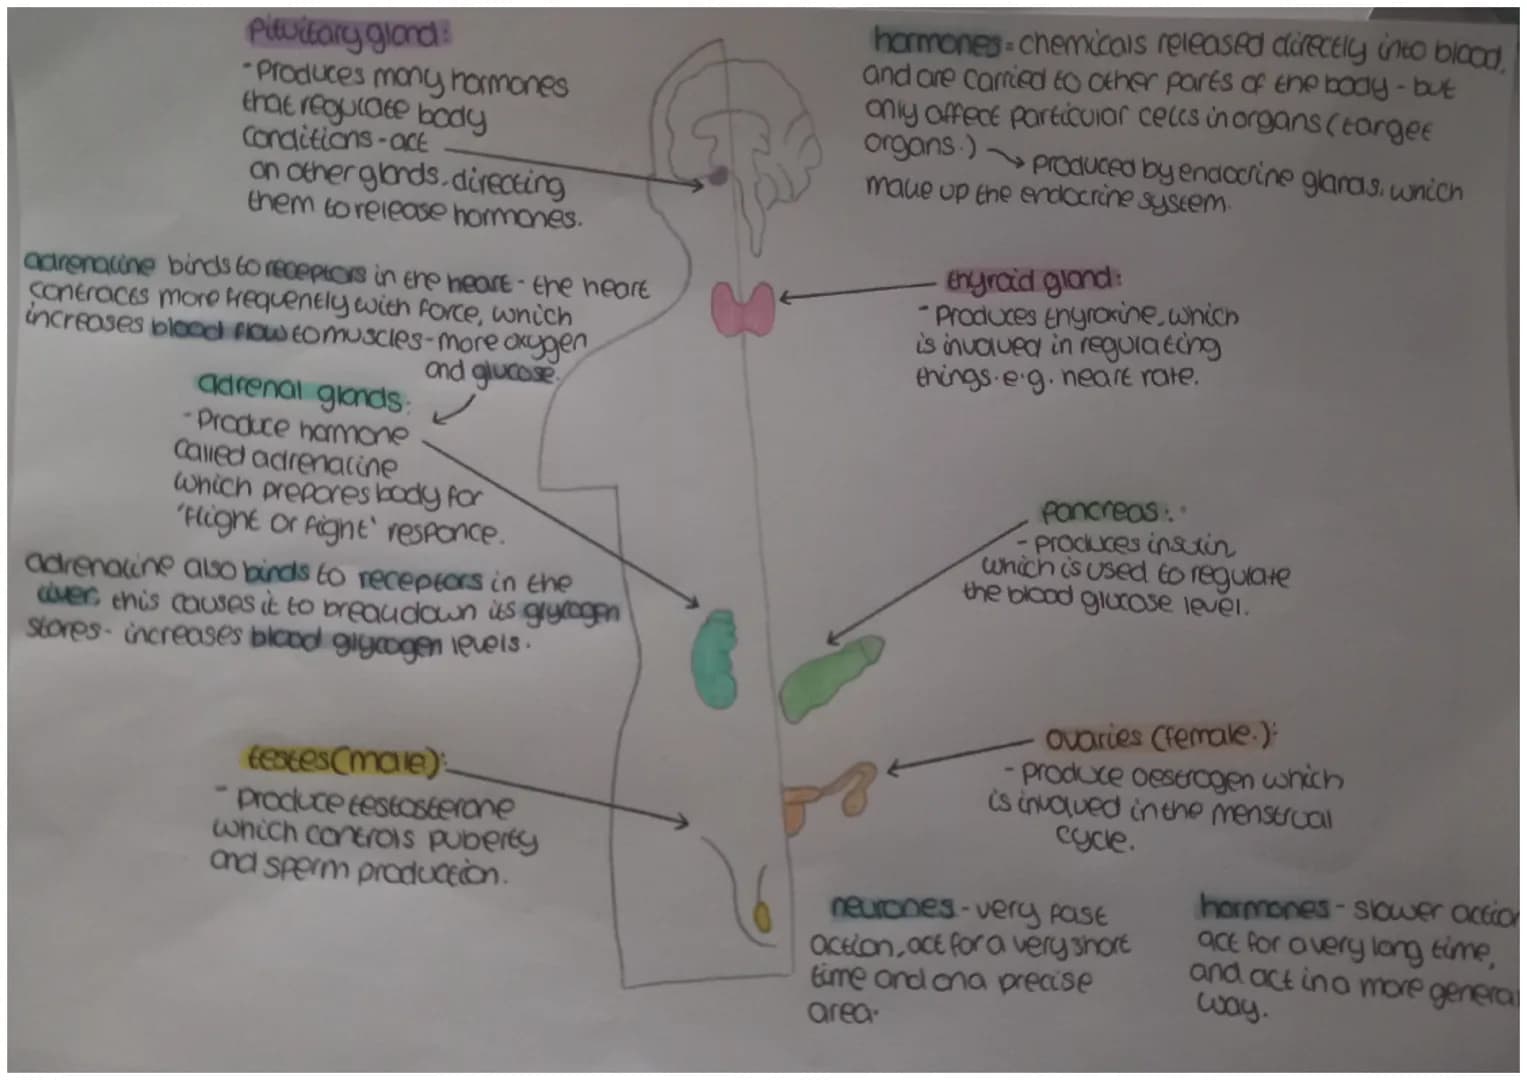 pituitary gland:
- Produces many hormones
that regulate body
conditions - act
on other glands, directing
them to release hormones.
hormones = chemicals released directly into blood,
and are carried to other parts of the body - but
only affect particular cells in organs (target
organs.) → produced by endocrine glands, which
make up the endocrine system.
adrenaline binds to receptors in the heart - the heart
contracts more frequently with force, which
increases blood flow to muscles - more oxygen
and glucose.
thyroid gland:
- Produces thyroxine, which
is involved in regulating
things. e.g. heart rate.
adrenal glands:
- Produce hormone
called adrenaline
which prepares body for
'flight or fight' responce.
pancreas:
- produces insulin
which is used to regulate
the blood glucose level.
adrenaline also binds to receptors in the
liver, this causes it to breakdown its glycogen
stores - increases blood glycogen levels.
testes (male):
- produce testosterone
which controls puberty
and sperm production.
ovaries (female.):
- produce oestrogen which
is involved in the menstrual
cycle.
neurones - very fast
action, act for a very short
time and on a precise
area.
hormones - slower action
act for a very long time,
and act in a more general
way.